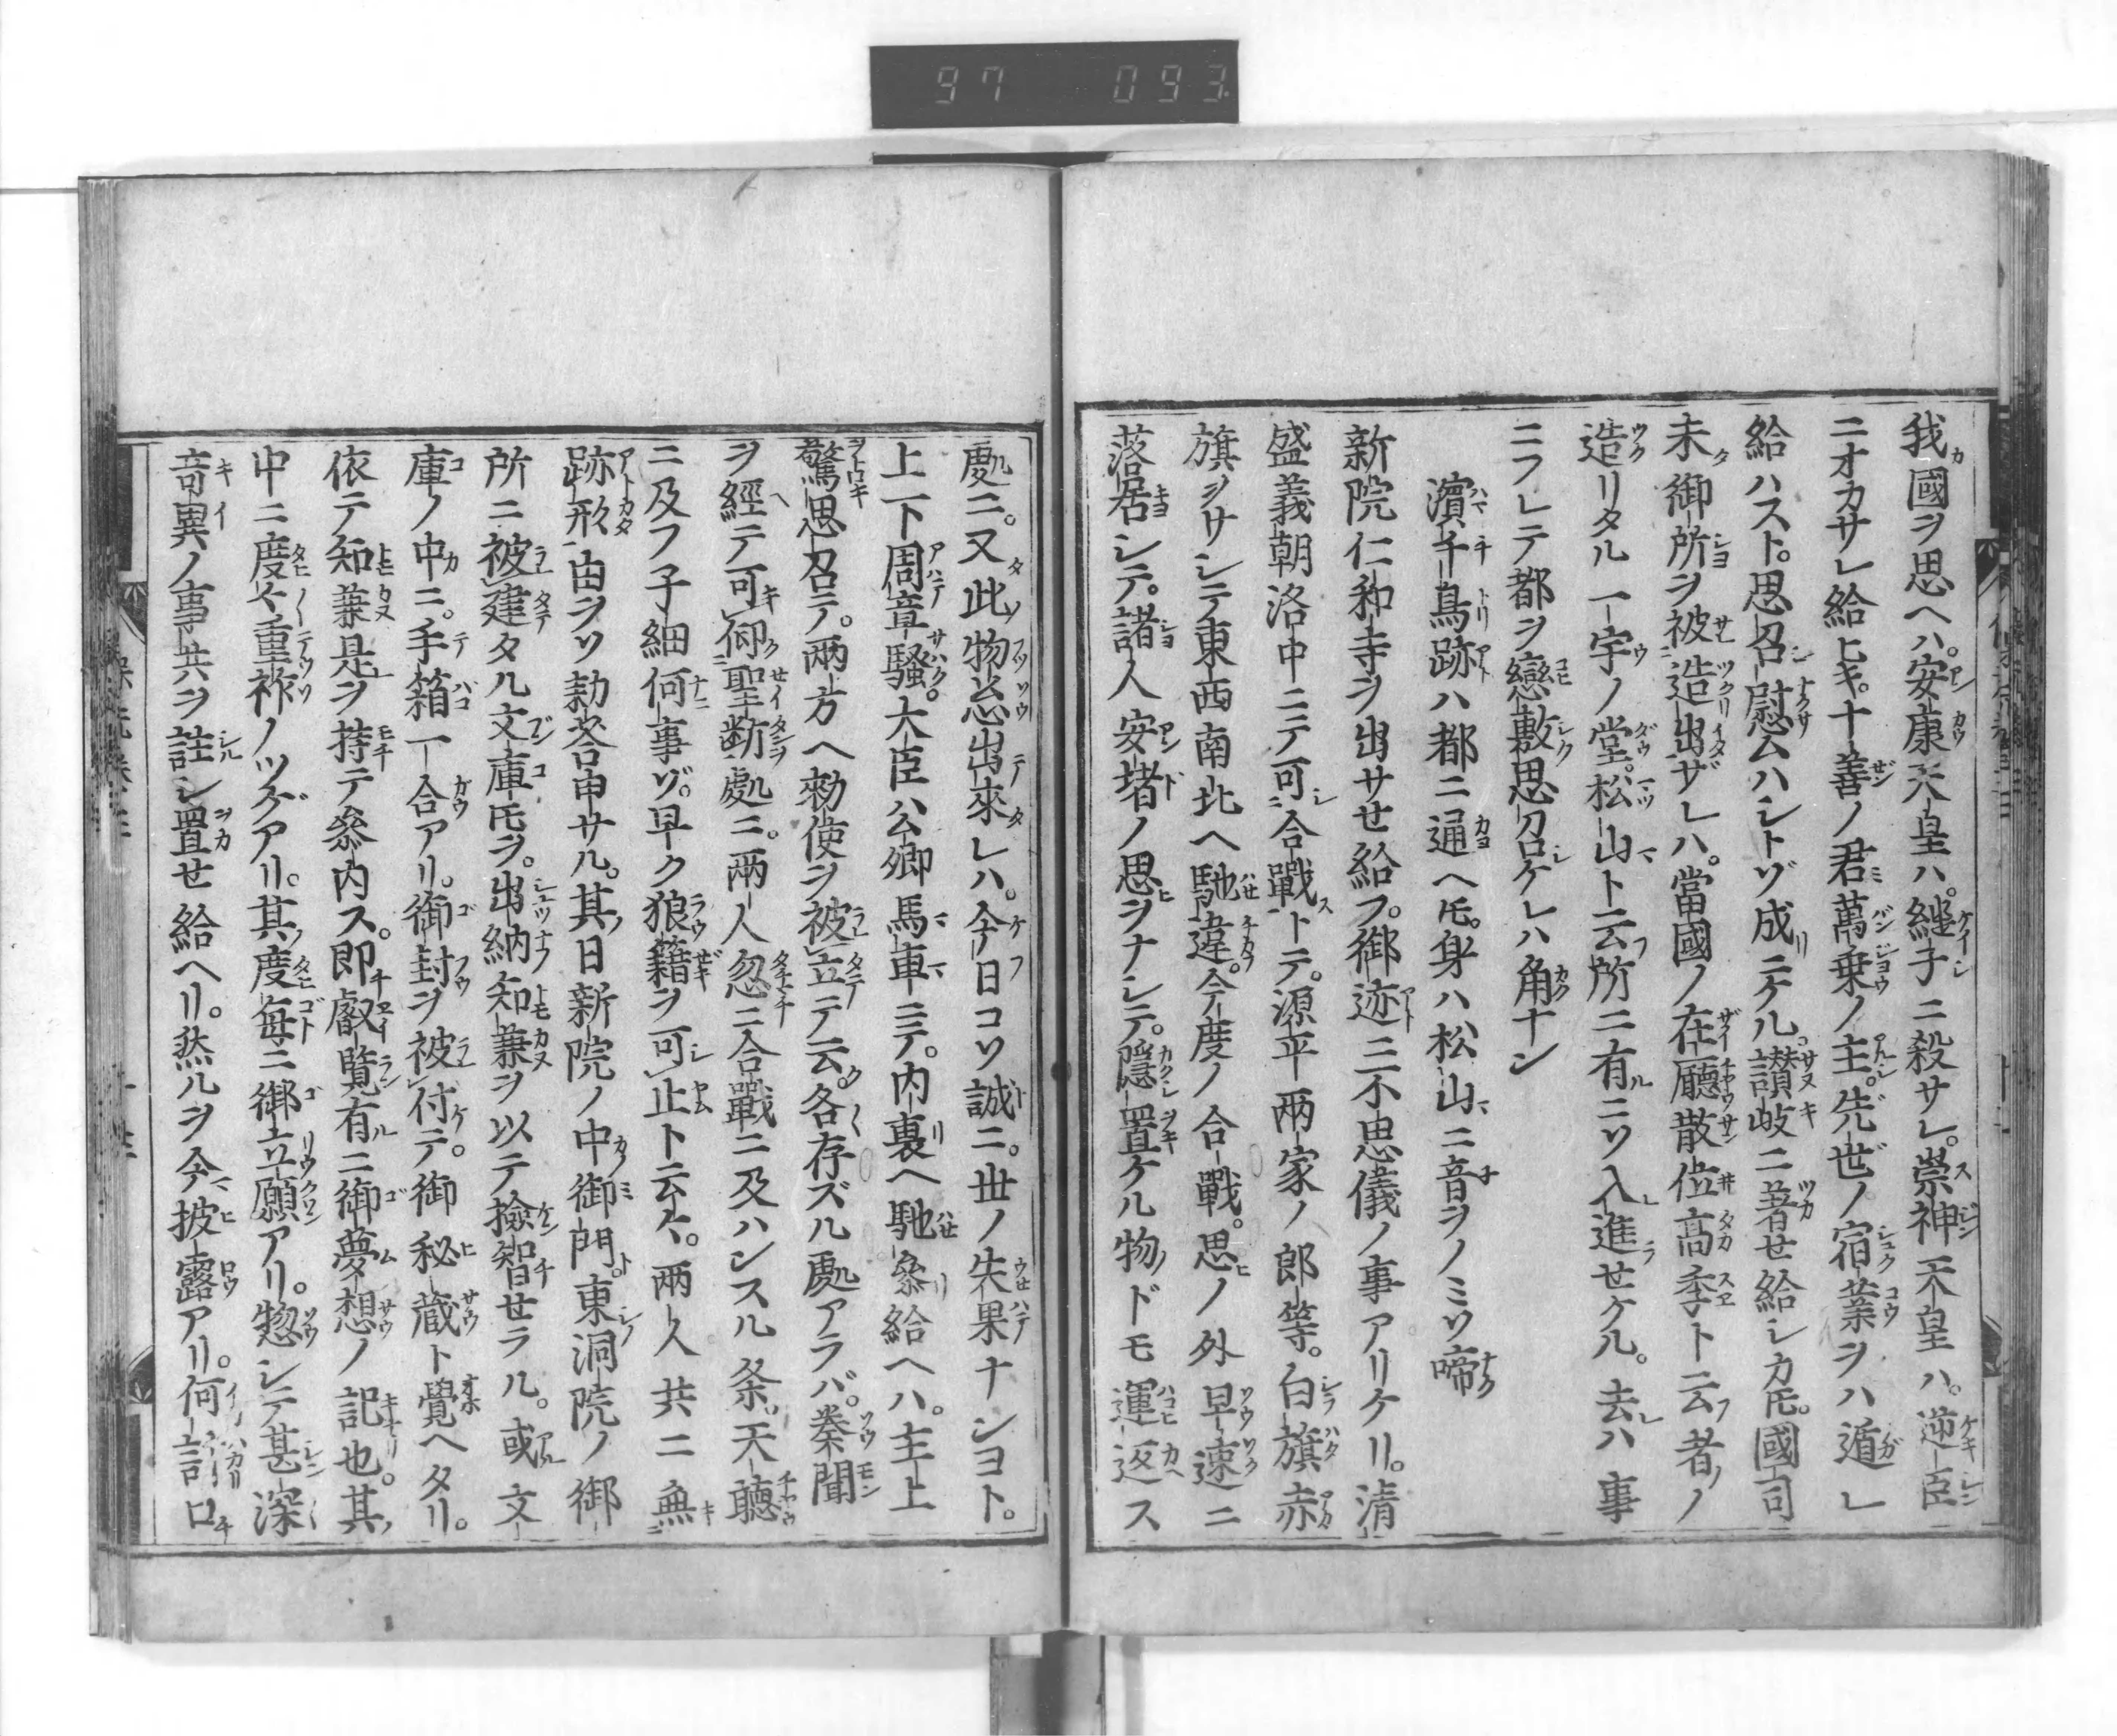 97 093
我國ヲ思ヘハ。安康天皇ハ。繼子ニ殺サレ。崇神天皇ハ。逆臣
ニオカサレ給ヒキ。十善ノ君萬乗ノ主。先世ノ宿業ヲハ遁レ
給ハスト。思召慰ムハシトゾ成ニケル。讃岐ニ著セ給シカ𪜈。國司
未御所ヲ被造出ザレハ。當國ノ在廳散位高季ト云者ノ
造リタル一宇ノ堂。松山ト云所ニ有ニソ入進セケル。去ハ事
ニフレテ都ヲ戀敷思召ケレハ角ナン
濵千鳥跡ハ都ニ通ヘ𪜈。身ハ松山ニ音ヲノミソ啼
新院仁和寺ヲ出サせ給フ。御迹ニ不思儀ノ事アリケリ。清
盛義朝洛中ニテ可合戰トテ。源平兩家ノ郎等。白旗赤
旗ヲサシテ東西南北ヘ馳違。今度ノ合戰。思ノ外早速ニ
落居シテ。諸人安堵ノ思ヲナシテ。隱置ケル物ドモ運返ス
處ニ。又此物忩出來レハ。今日コソ誠ニ。世ノ失果ナンヨト。
上下周章騒。大臣公卿馬車ニテ。内裏ヘ馳參給ヘハ。主上
驚思召テ。兩方ヘ勅使ヲ被立テ云。各存ズル處アラバ。奏聞
ヲ經テ可仰聖断處ニ。兩人忽ニ合戰ニ及ハンスル条。天聽
ニ及フ子細何事ゾ。早ク狼藉ヲ可止ト云々。兩人共ニ無
跡形由ヲソ勅答申サル。其日新院ノ中御門。東洞院ノ御
所ニ被建タル文庫𪜈ヲ。出納知兼ヲ以テ撿智せラル。或文
庫ノ中ニ。手箱一合アリ。御封ヲ被付テ。御秘蔵ト覺ヘタリ。
依テ知兼是ヲ持テ參内ス。即叡覧有ニ御夢想ノ記也。其
中ニ度々重祚ノツゲアリ。其度毎ニ御立願アリ。惣シテ甚深
竒異ノ事共ヲ註シ置せ給ヘリ。然ルヲ今披露アリ。何計口